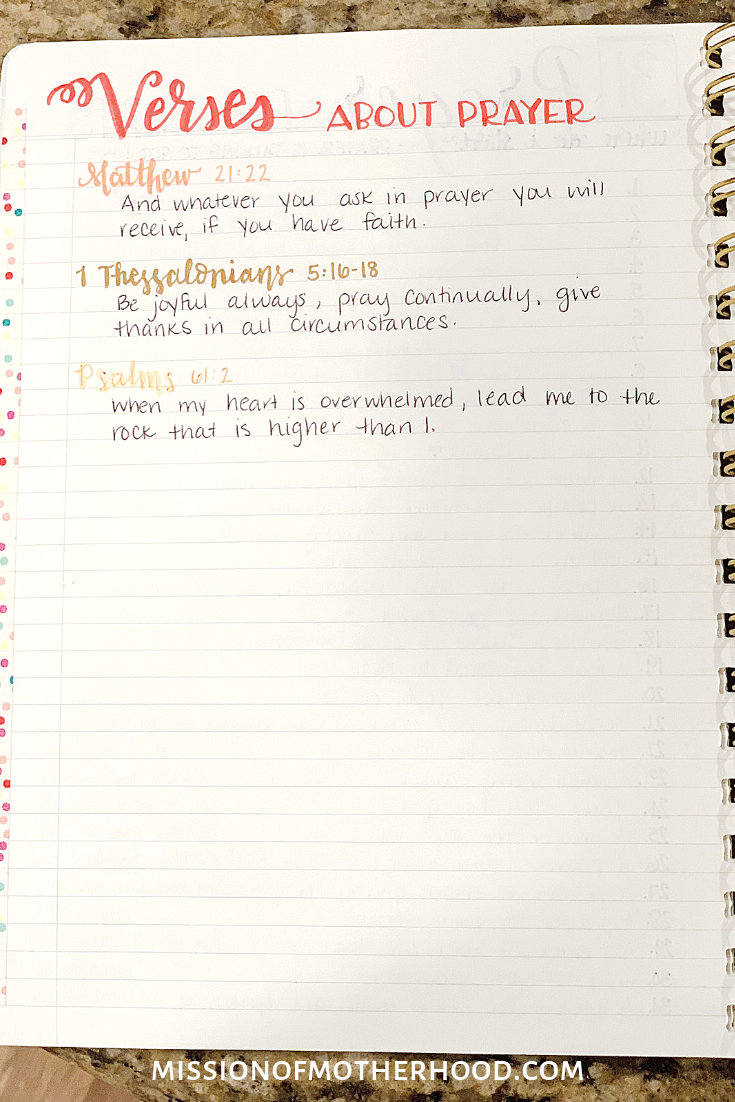 Verses ABOUT PRAYER
Matthew 21:22
And whatever you ask in prayer you will
receive, if you have faith.
1 Thessalonians 5:16-18
Be joyful always, pray continually, give
thanks in all circumstances.
Psalms 61:2
when my heart is overwhelmed, lead me to the
rock that is higher than I.
MISSIONOFMOTHERHOOD.COM